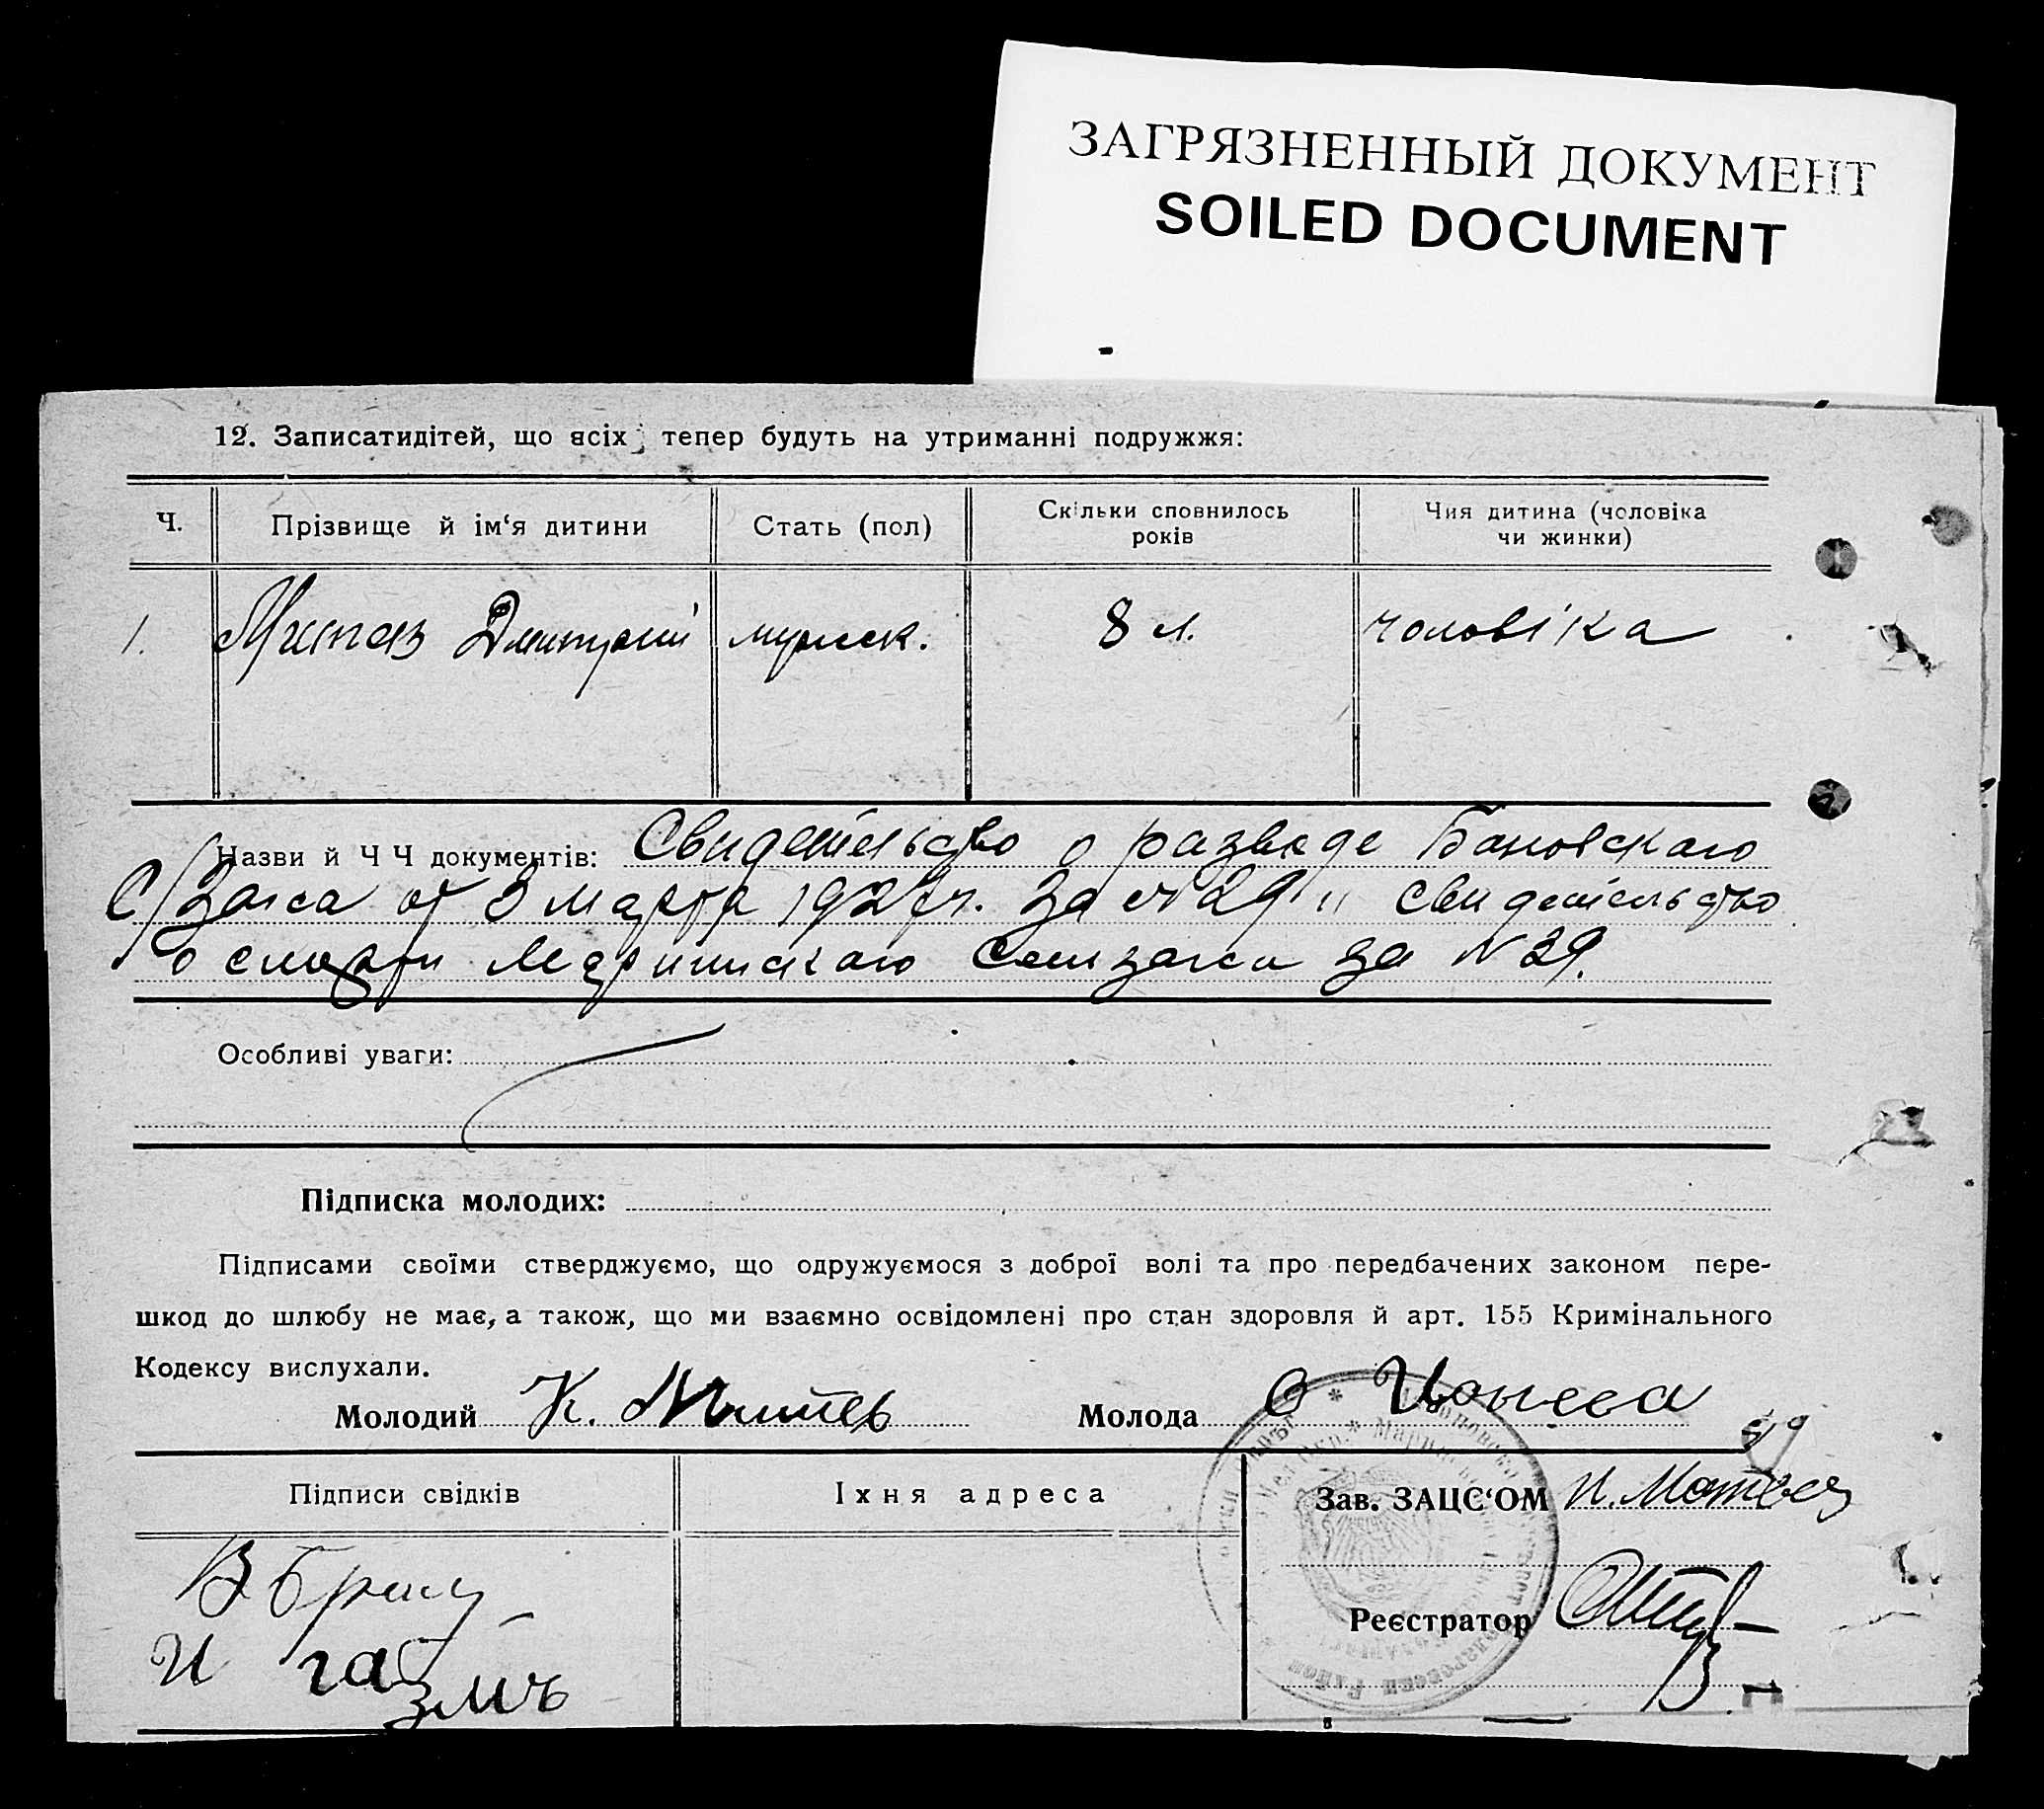 ЗАГРЯЗНЕННЫЙ ДОКУМЕНТ
SOILED DOCUMENT
12. Записатидітей, що всіх тепер будуть на утриманні подружжя:
Ч.
Прізвище й ім‘я дитини
Стать (пол)
Скільки сповнилось
років
Чия дитина (чоловіка
чи жинки)
1.
Митев Дмитрий
мужск.
8 л.
чоловіка
Назви й Ч Ч документів: Свидетельство о разводе Бановского
С/Загса от 3 марта 1927 г. за № 29 и свидетельство
о смерти Маринскаго Сельзагса за № 39.
Особливі уваги:
Підписка молодих:
Підписами своїми стверджуємо, що одружуємося з доброї волі та про передбачених законом пере-
шкод до шлюбу не має, а також, що ми взаємно освідомлені про стан здоровля й арт. 155 Кримінального
Кодексу вислухали.
Молодий К. Митев
Молода О Цонева
Підписи свідків
Їхня адреса
Зав. ЗАЦС‘ОМ
Реєстратор